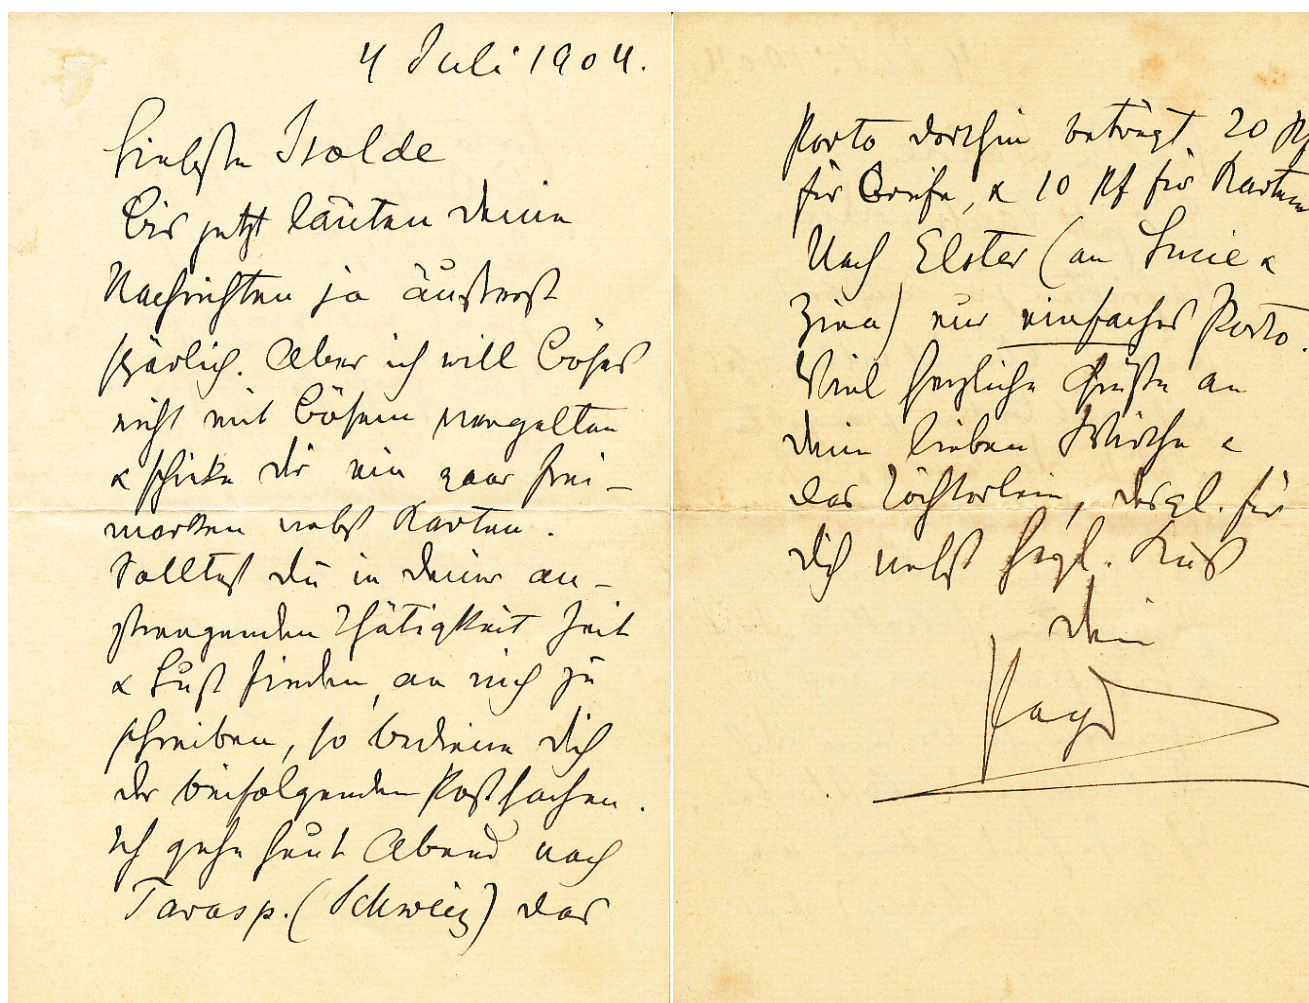 4 Juli 1904.
Liebste Isolde
Bis jetzt lauten deine
Nachrichten ja äußerst
spärlich. Aber ich will Böses
nicht mit Bösem vergelten
& schicke dir ein paar Frei-
marken nebst Karten.
Solltest du in deiner an-
strengenden Thätigkeit Zeit
& Lust finden, an mich zu
schreiben, so bediene dich
der beifolgenden Postsachen.
Ich gehe heut Abend nach
Tarasp. (Schweiz) das
Porto dorthin beträgt 20 Pf
für Briefe, & 10 Pf für Karten
Nach Elster (an Lucie &
) nur einfaches Porto.
Viel herzliche Grüße an
dein lieben Wirthe &
das Töchterlein, desgl. für
dich nebst herzl. Kuß
dein